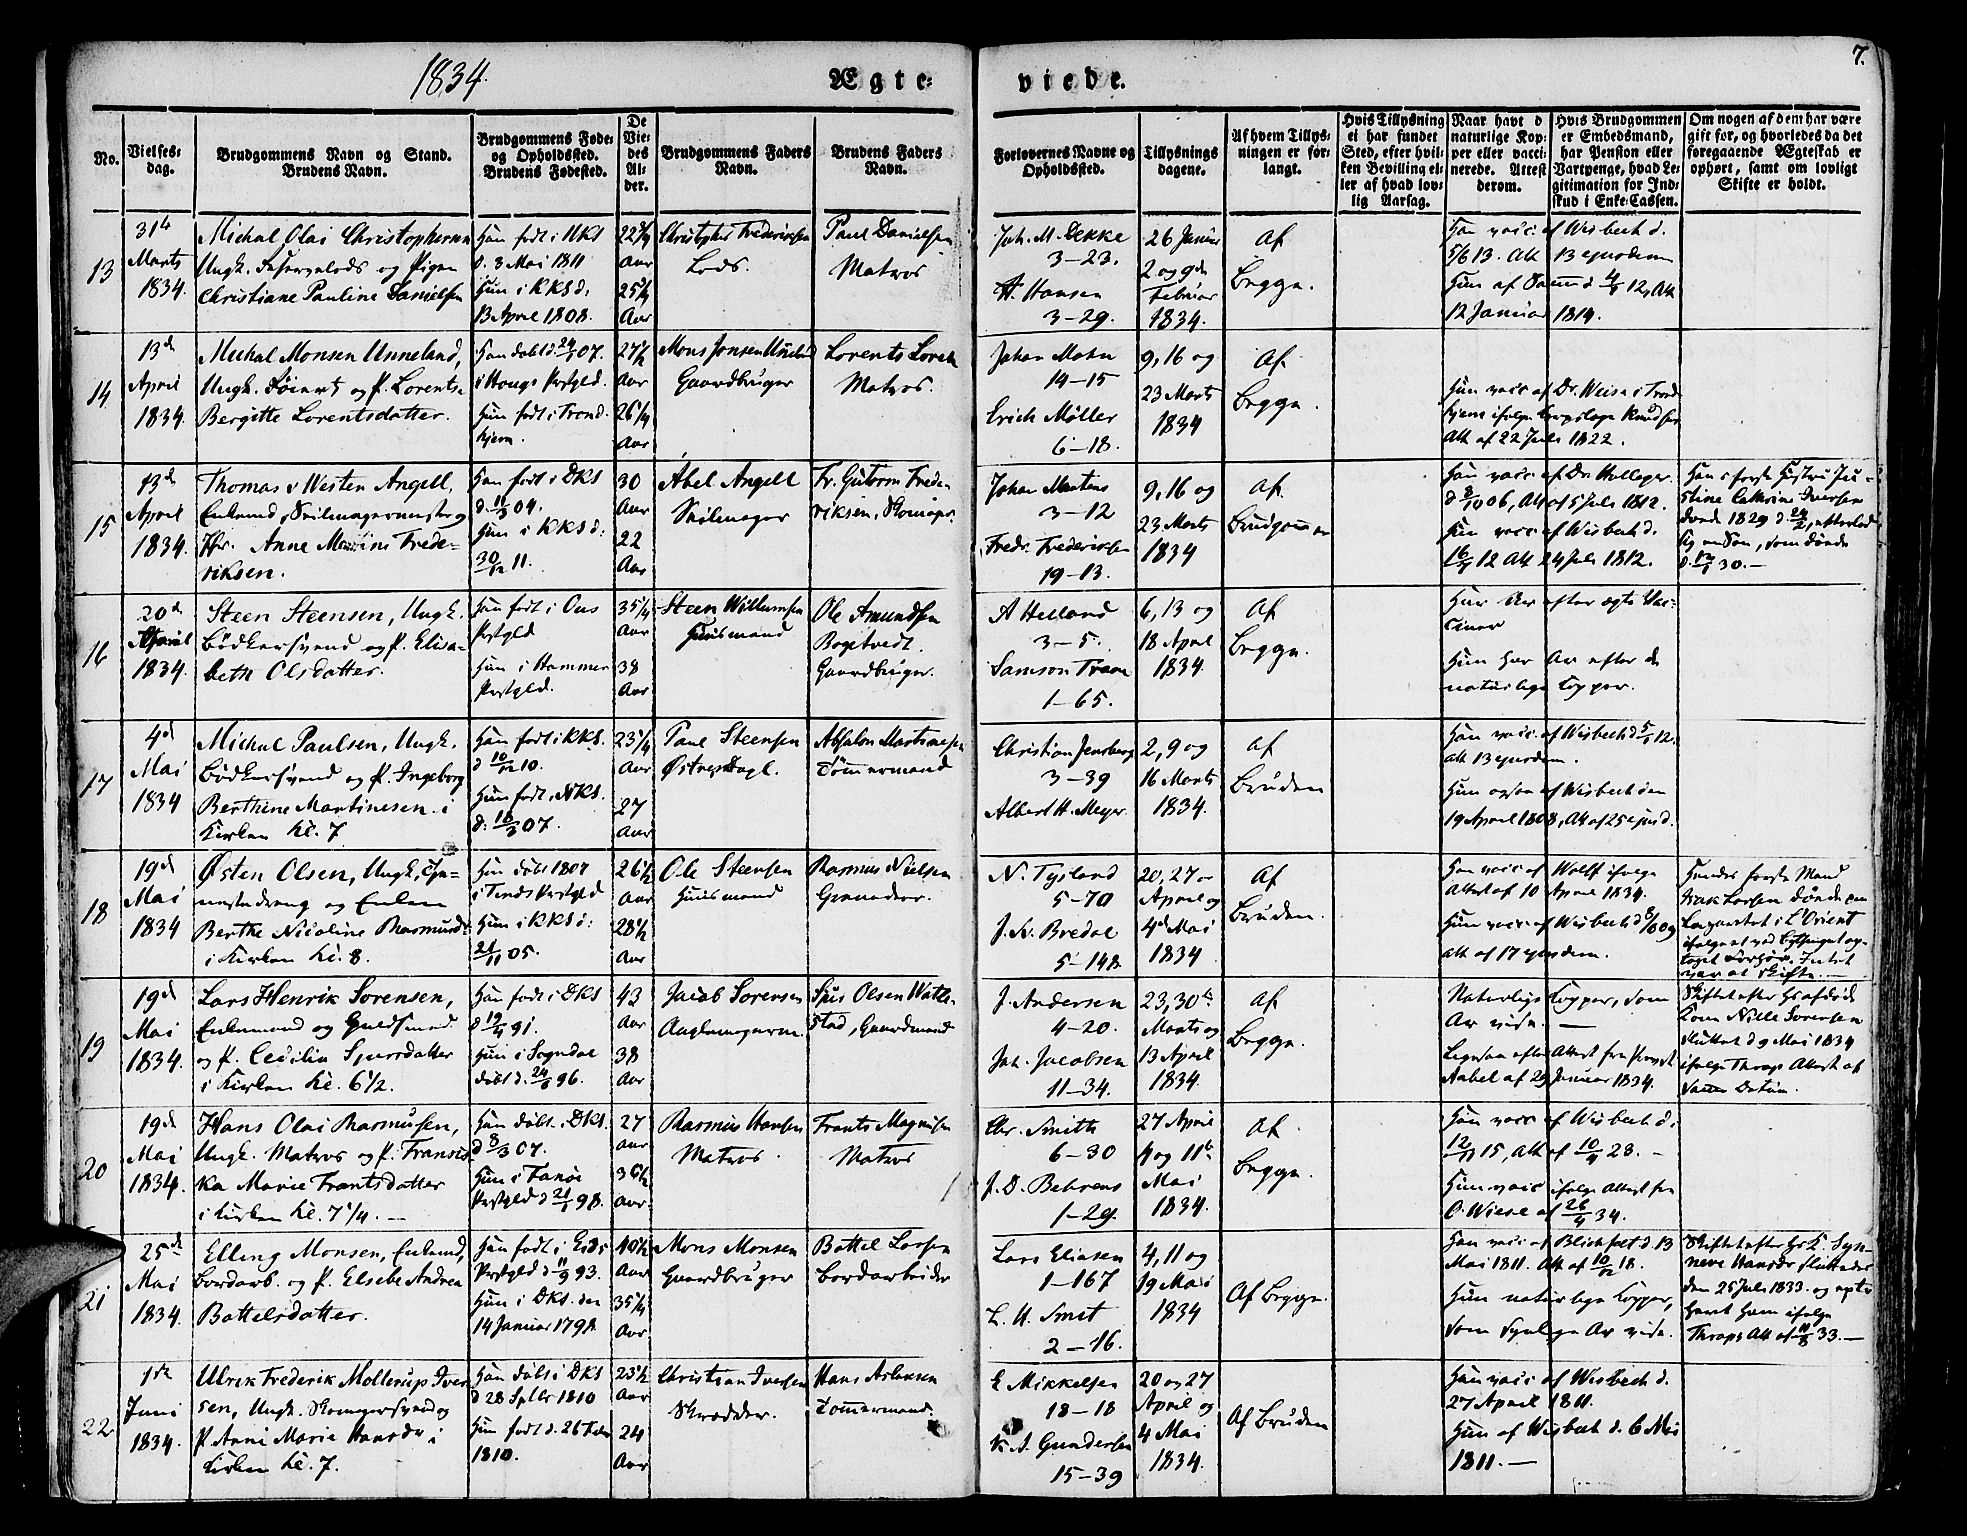 1834.
Ægte-
viede.
7.
No.
Vielses-
dag.
Brudgommens Navn og Stand.
Brudens Navn.
Brudgommens Føde-
og Opholdssted.
Brudens Fødested.
De
Vie-
des
Al-
der.
Brudgommens Faders
Navn.
Brudens Faders
Navn.
Forlovernes Navne og
Opholdssted.
Tillysnings
dagene.
Af hvem Tillys-
ningen er for-
langt.
Hvis Tillysning
ei har fundet
Sted, efter hvil-
ken Bevilling el-
ler af hvad lov-
lig Aarsag.
Naar havt d
naturlige Kop-
per eller vacci-
nerede. Attest
derom.
Hvis Brudgommen
er Embedsmand,
har Pension eller
Vartpenge, hvad Le-
gitimation for Ind-
skud i Enke-Cassen.
Om nogen af dem har være
gift før, og hvorledes da det
foregaaende Ægteskab er
ophørt, samt om lovligt
Skifte er holdt.
13
31te
Marts
1834.
Michal Olai Christophersen
Ungk. og Pigen
Christiane Pauline Danielsen
Han født i NKS
d. 3 Mai 1811
Hun i KKS d:
13 April 1808.
Aar
Aar
Christopher Frederiksen
Lods.
Paul Danielsen
Matros
Joh. M. Dekke
3-23.
A. Hansen
3-29.
26 Januar
2 og 9de
Februar
1834.
Af
Begge.
Han vacc. af Wisbech d.
5/6 13. Att. 13 ejusdem
12 Januar 1814.
14
13de
April
1834.
Michal Monsen Unneland,
Ungk. og P. Lorents-
Bergitte Lorentsdatter.
Han døbt d. 07.
i Hougs Præstgld.
Hun født i Trond-
hjem.
Aar
26 1/4
Aar
Mons Jonsen Unneland
Gaardbruger
Lorents Lorck
Matros.
Johan Mohn
14-15
Erich Møller
6-18.
9, 16 og
23 Marts
1834
Af.
Begge.
Hun vacc. af Dr. Weise i Trond-
hjem ifølge Knudsen
Att. af 22 Juli 1822.
15
13de
April
1834.
Thomas v Westen Angell,
Enkemd, Seilmagermester og
Jfr. Anne Martine Frede-
riksen.
Han født i DKS
04.
Hun i KKS d:
30/12 11.
30
Aar
22
Aar
Abel Angell
Seilmager
Fr. Gutorm Frede-
riksen, Skomager.
Johan Martens
3-12
Fredr. Frederiksen
19-13.
9, 16 og
23 Marts
1834
Af.
Brudgommen
Hun vacc. af Wisbech d.
12 Att. 24 Juli 1812.
Hans første Hustru Ju-
stine Cathrine Iversen
døde 1829 d. 24/2, efterlod
sig en Søn, som døde
30.-
16
20de
April
1834.
Steen Steensen, Ungk.
Bødkersvend og P. Elisa-
beth Olsdatter.
Han født i Ous
Præstgld
Hun i Hammer
Præstgld.
35 1/4
Aar
38
Aar
Steen Willumsen
Huusmand
Ole Amundsen
Bogetvedt.
Gaardbruger.
A Helland
3-5.
Samson Traae
1-65.
6, 13 og
18 April
1834.
Af
Begge.
Har Ar efter ægte Vac-
ciner
Hun har Ar efter de
naturlige Kopper.
17
4de
Mai
1834
Michal Paulsen, Ungk.
Bødkersvend og P. Ingeborg
Berthine Martinesen. i
Kirken kl. 7
Han født i KKS.
d 10/12 10.
Hun født i NKS.
07.
23 1/4
Aar
27
Aar
Paul Steensen
Absalon Martinesen
Tømmermand
Christian Jensberg
3-39
Albert H. Meyer.
2, 9 og
16 Marts
1834.
Af
Bruden
Han vacc. af Wisbech d 5/1 12.
att. 13 ejusdem.
Hun og af Wisbech den
19 April 1808, Att. af 25 ejusd.
18
19de
Mai
1834
Østen Olsen, Ungk.
og Enken
Berthe Nicoline Rasmusd:
i Kirken kl. 8.
Han døbt 1807
i Tinds Præstgld
Hun i KKS d:
21/11 05.
26 1/2
Aar
28 1/2
Aar
Ole Steensen
Huusmand
Rasmus Nielsen
Grenadeer.
N. Tysland
5-70
J. K. Bredal
5-148
20, 27 -
April og
4de Mai
1834
Af
Bruden.
Han vacc. af Wolff ifølge
Attest af 10 April 1834.
Hun vacc. af Wisbech d 8/6 09
att. af 17 ejusdem.
Hendes første Mand
Isak Larsen døde paa
Lazarettet i L'Orient
19
19de
Mai
1834.
Lars Henrik Sørensen,
Enkemand og Guldsmed
og P. Cecilia Sjursdatter
i Kirken kl. 6 1/2.
Han født i DKS
91.
Hun i Sogndal
døbt d. 96.
43
Aar
38
Aar
Jacob Sørensen
Sjur Olsen Watle-
stad, Gaardmand
J. Andersen
4-20.
Joh. Jacobsen
11-34.
23, 30te
Marts og
13 April
1834.
Af
Begge.
Naturlige Kopper, som
Ar vise. -
Ligesaa efter Attest fra Provst
Aabel af 29 Januar 1834.
Skiftet efter hs afdøde
Kone Nille Sørensen
sluttet d 9 Mai 1834
ifølge Thraps Attest af
samme Datum.
20
19de
Mai
1834.
Hans Olai Rasmusen,
Ungk. Matros og P. Fransis-
ka Marie Frantsdatter
i Kirken kl. 7 1/4. -
Han døbt i DKS.
d 8/3 07.
Hun i Fanøe
Præstgld d 21/1 98.
27
Aar
36 1/2
Aar.
Rasmus Hansen
Matros.
Frants Magnusen
Matros
Chr. Smith
6-30
J. D. Behrens
1-29.
27 April
4 og 11te
Mai
1834.
Af
Begge.
Han vacc. af Wisbech d.
15, Att. af 28. -
Hun vacc. ifølge Attest fra
O. Wiese af 26/4 34.
21
25de
Mai
1834.
Elling Monsen, Enkemd,
Bordarb. og P. Elsebe Andrea
Bottelsdatter.
Han født i Eids
Præstgld d 11/9 93.
Hun i DKS. den
14 Januar 1798
40 1/2
Aar
35 1/4
Aar
Mons Monsen
Gaardbruger
Bottel Larsen
Bordarbeider
Lars Eliasen
1-167
L. U. Smit
2-16.
4, 11 og
19 Mai
1834
Af Begge.
Han vacc. af Blichfeldt d. 13
Mai 1811. Att. af 10/12 18.
Hun naturlige Kopper,
som synlige Ar vise.
Skiftet efter hs K. Syn-
neve Hansdr sluttedes
den 25 Juli 1833. og
ham ifølge
Thraps Att. af 11/8 33.-
22
1ste
Juni
1834.
Ulrik Frederik Mollerup Iver-
sen, Ungk. Skomagersvend og
P. Anne Marie Hansdr i
Kirken kl. 7.
Han døbt i DKS
d 28 Sptbr 1810
Hun født d. 26 Febr
1810.
23 1/2
Aar
24
Aar
Christian Iversen
Skrædder.
Hans Aslaksen
Tømmermand.
E Mikkelsen
18-18
K. A. Gundersen
15-39
20 og 27
April og
4 Mai
1834.
Af Bruden
Han vacc. af Wisbech d.
27 April 1811.
Hun af Wisbech d. 6 Mai
1811. -